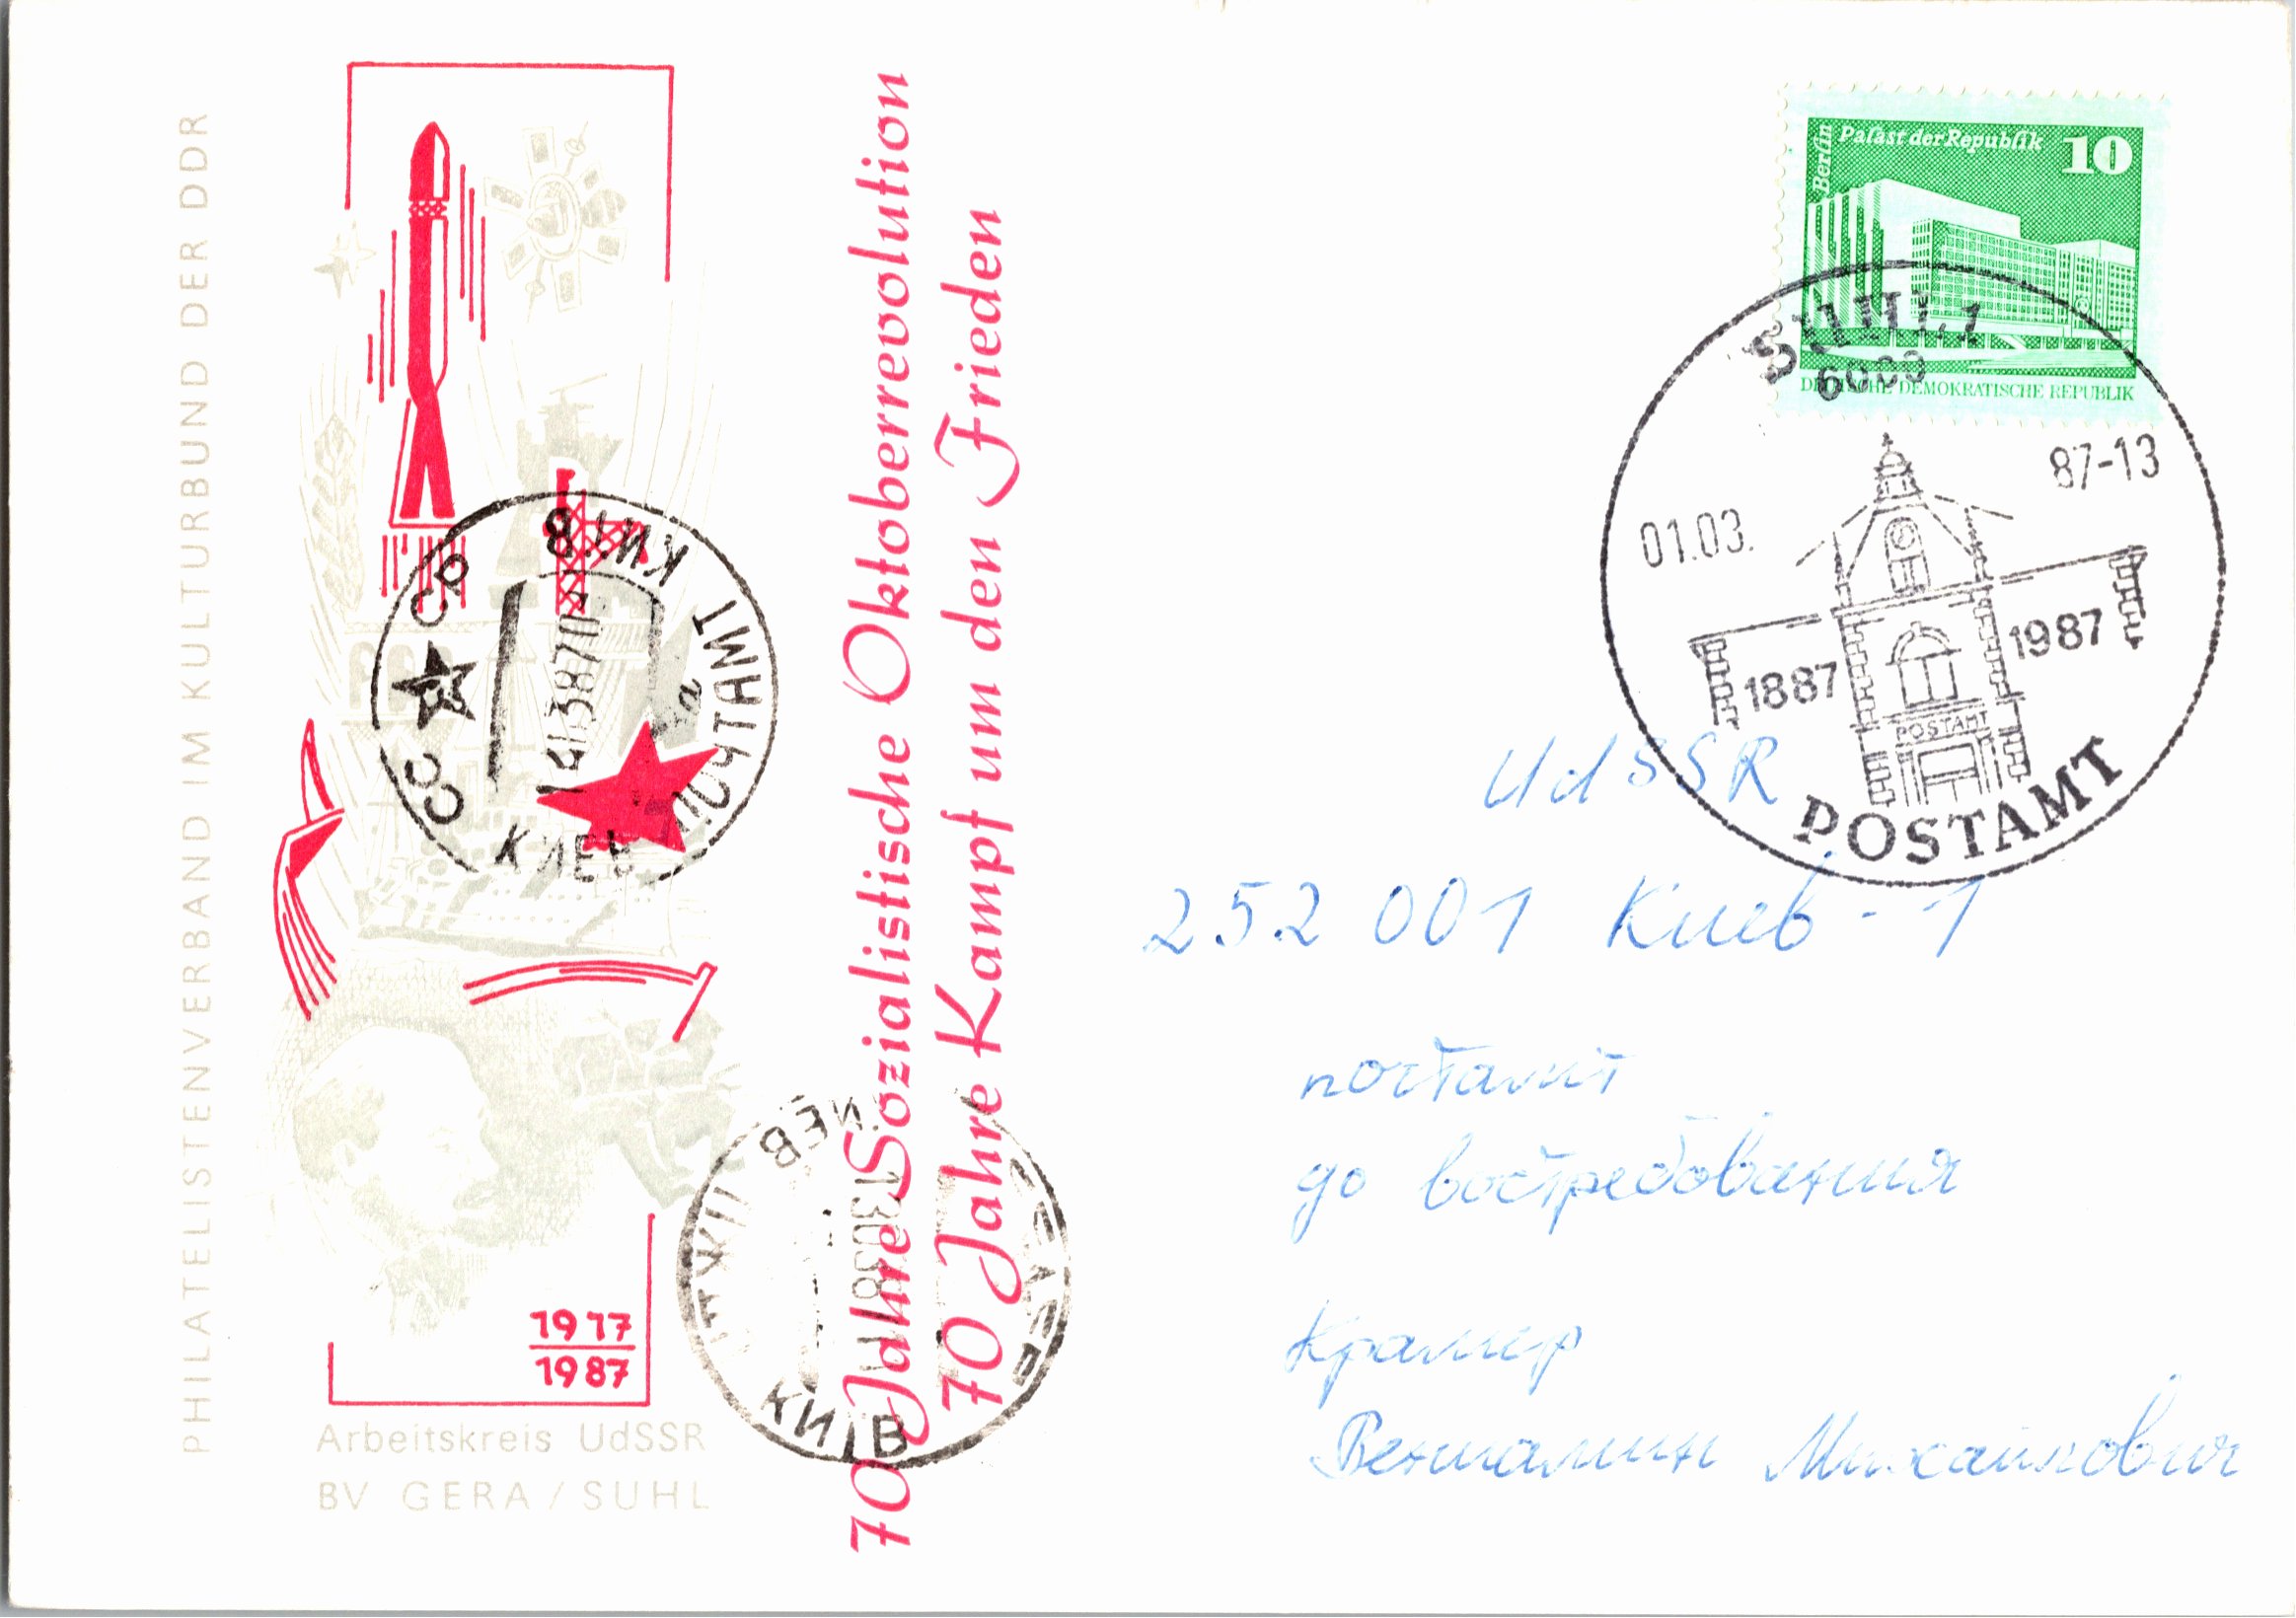 PHILATELISTENVERBAND IM KULTURBUND DER DDR
1917
1987
Arbeitskreis UdSSR
BV GERA / SUHL
70 Jahre Sozialistische Oktoberrevolution
70 Jahre Kampf um den Frieden
СССР
КИЇВ
ПОЧТАМТ
КИЕВ
КИЕВ
КИЇВ
Berlin
Palast der Republik
10
DEUTSCHE DEMOKRATISCHE REPUBLIK
SUHL 1
01.03.
87-13
1887
1987
POSTAMT
POSTAMT
UdSSR
252 001 Киев - 1
почтамт
до востребования
Крамер
Вениамин Михайлович